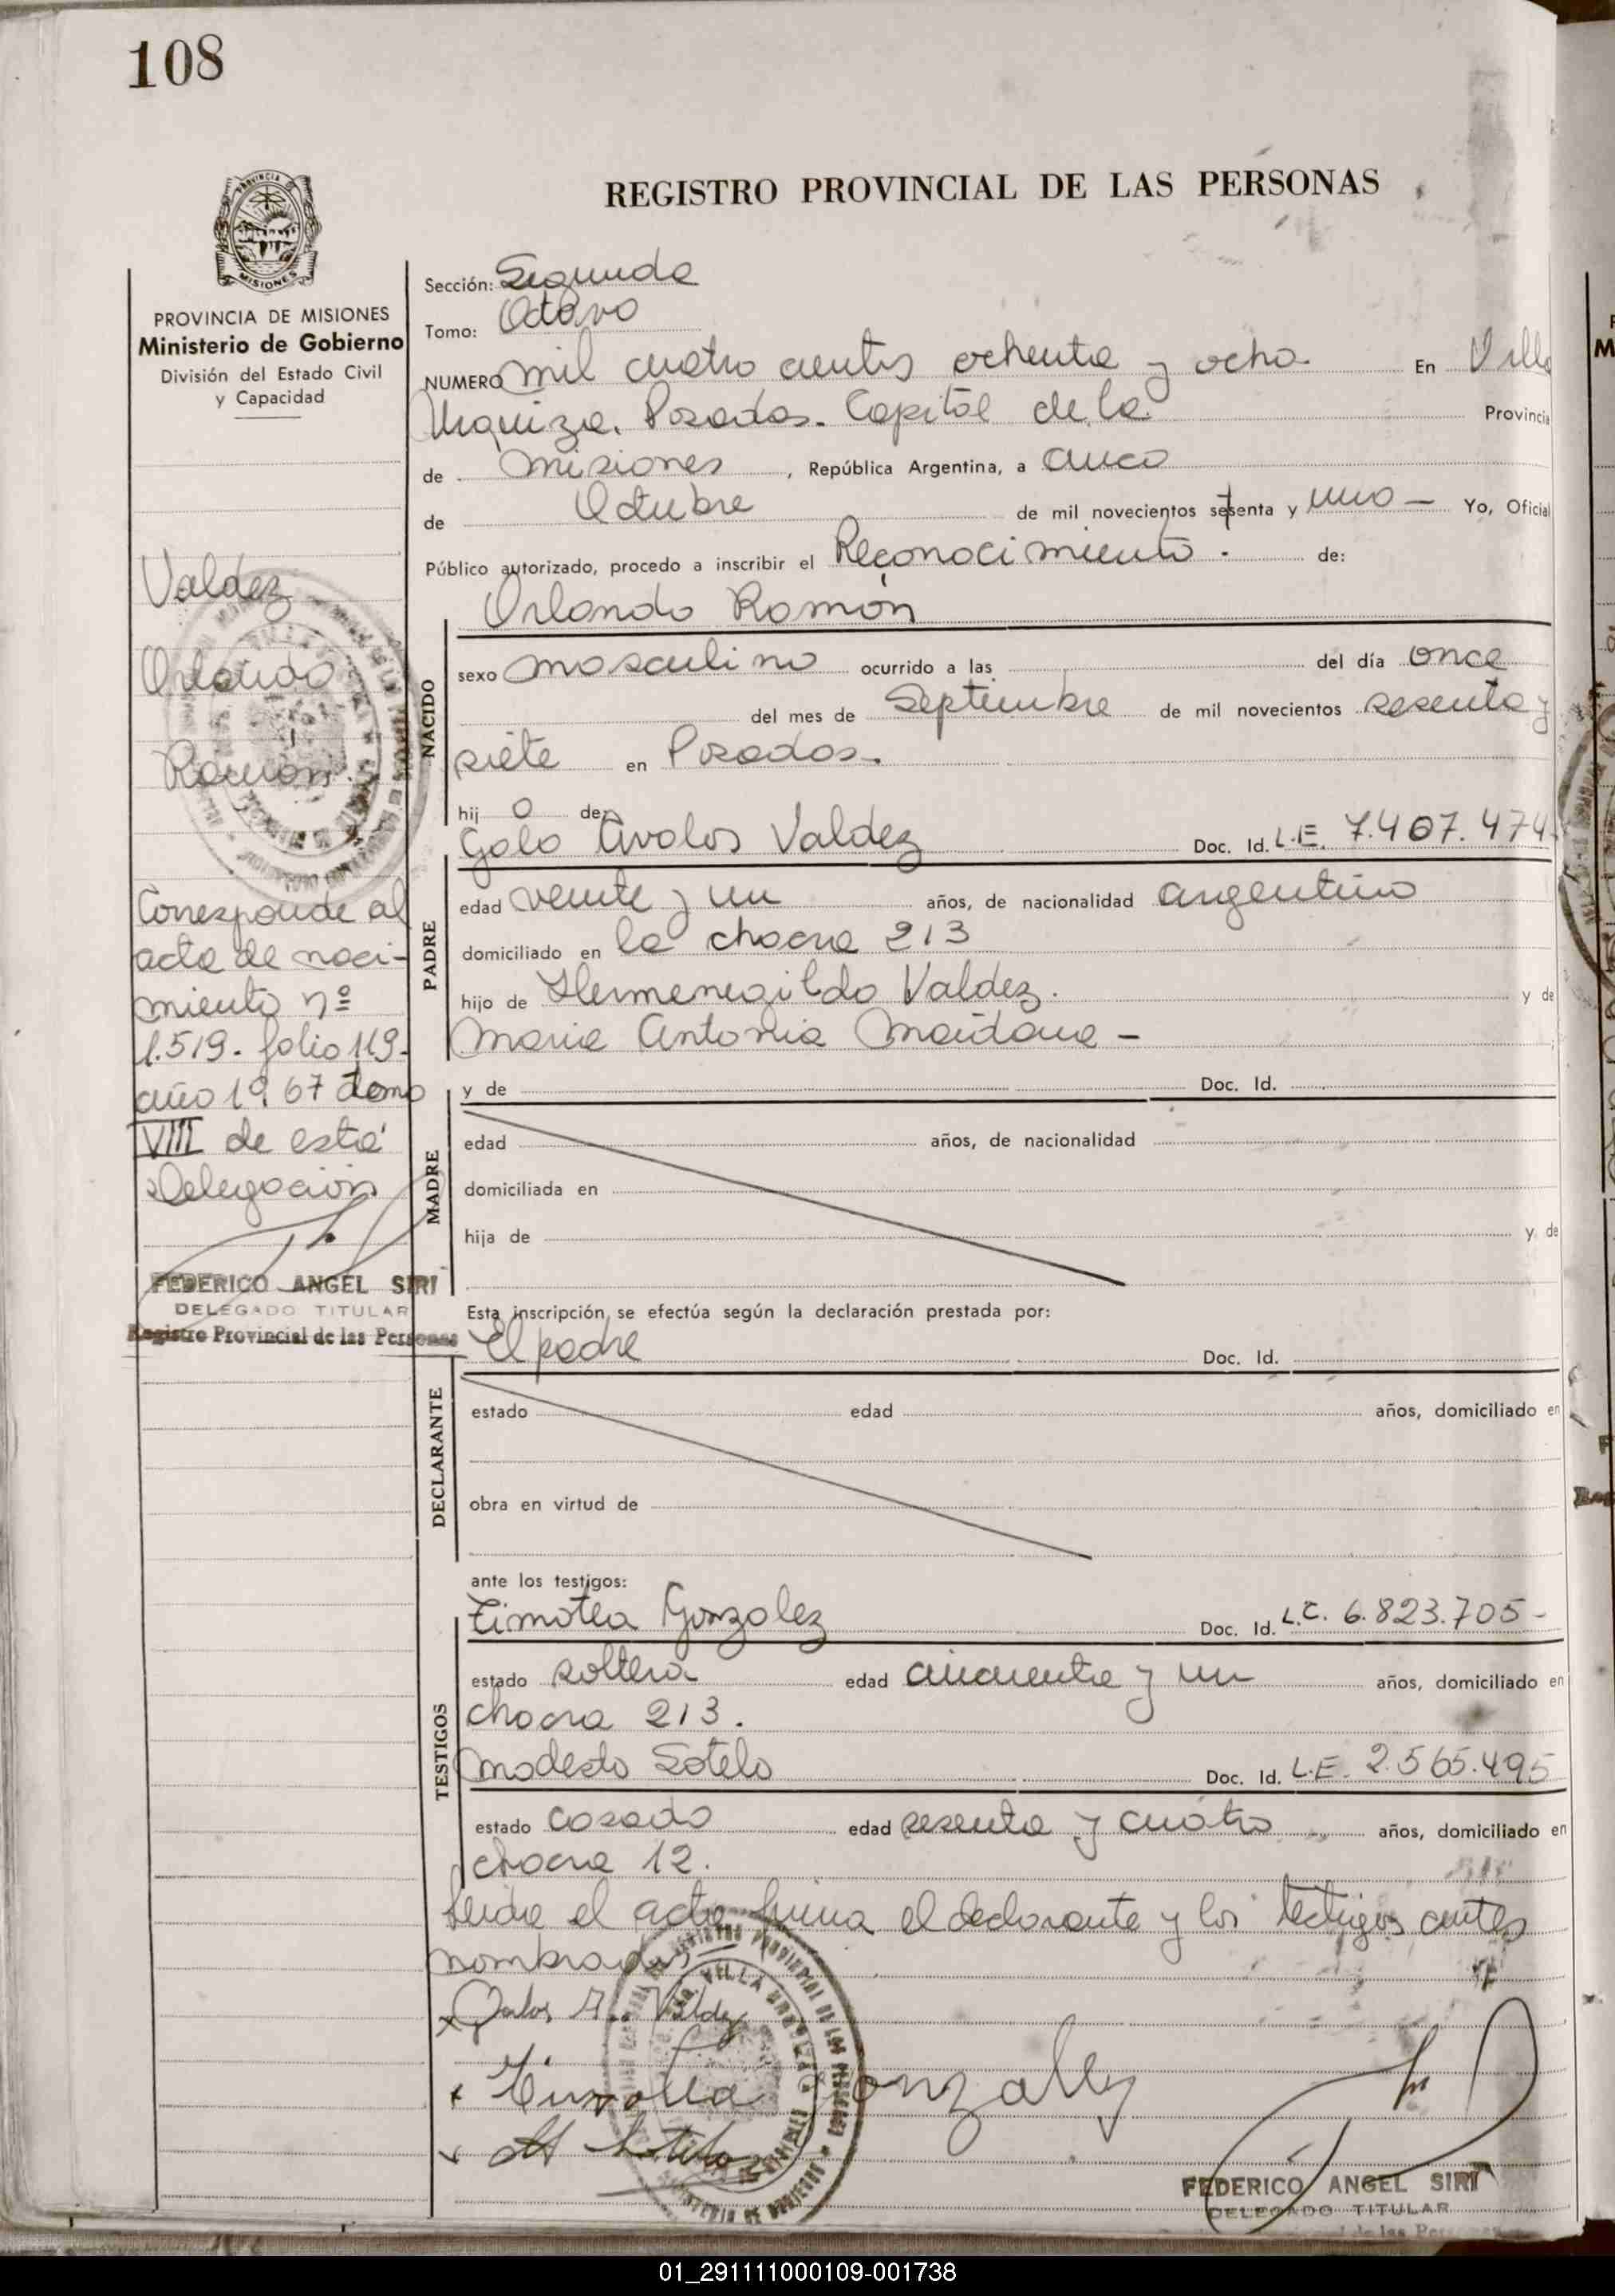 108
REGISTRO PROVINCIAL DE LAS PERSONAS
PROVINCIA
MISIONES
PROVINCIA DE MISIONES
Ministerio de Gobierno
División del Estado Civil
y Capacidad
Valdez
Orlando
Ramón.
Corresponde al
acta de naci-
miento nº
1.519. folio 119-
año 1967 tomo
VIII de esta
Delegación
FEDERICO ANGEL SIRI
DELEGADO TITULAR
Registro Provincial de las Personas
Sección: Segunda
Tomo: Octavo
NUMERO mil cuatro cientos ochenta y ocho. En Villa
Urquiza. Posadas. Capital de la Provincia
de misiones, República Argentina, a cinco
de Octubre de mil novecientos setenta y uno — Yo, Oficial
Público autorizado, procedo a inscribir el Reconocimiento. de:
Orlando Ramón
NACIDO
sexo masculino ocurrido a las del día once
del mes de Septiembre de mil novecientos sesenta y
siete en Posadas.
hij o de:
Avalos Valdez Doc. Id. L.E. 7.407.474-
PADRE
edad veinte y un años, de nacionalidad argentino
domiciliado en la chacra 213
hijo de Hermenegildo Valdez. y de
Maria Antonia Maidana —
MADRE
y de Doc. Id.
edad años, de nacionalidad
domiciliada en
hija de y de
Esta inscripción se efectúa según la declaración prestada por:
El padre Doc. Id.
DECLARANTE
estado edad años, domiciliado en
obra en virtud de
ante los testigos:
TESTIGOS
Timotea Gonzalez Doc. Id. L.C. 6.823.705-
estado soltera edad cincuenta y un años, domiciliado en
chacra 213.
Modesto Sotelo Doc. Id. L.E. 2.565.495
estado casado edad sesenta y cuatro años, domiciliado en
chacra 12.
Leida el acta firma el declarante y los testigos antes
nombrados
Valdez
Timotea Gonzalez
M Sotelo
VILLA URQUIZA
FEDERICO ANGEL SIRI
DELEGADO TITULAR
01_291111000109-001738